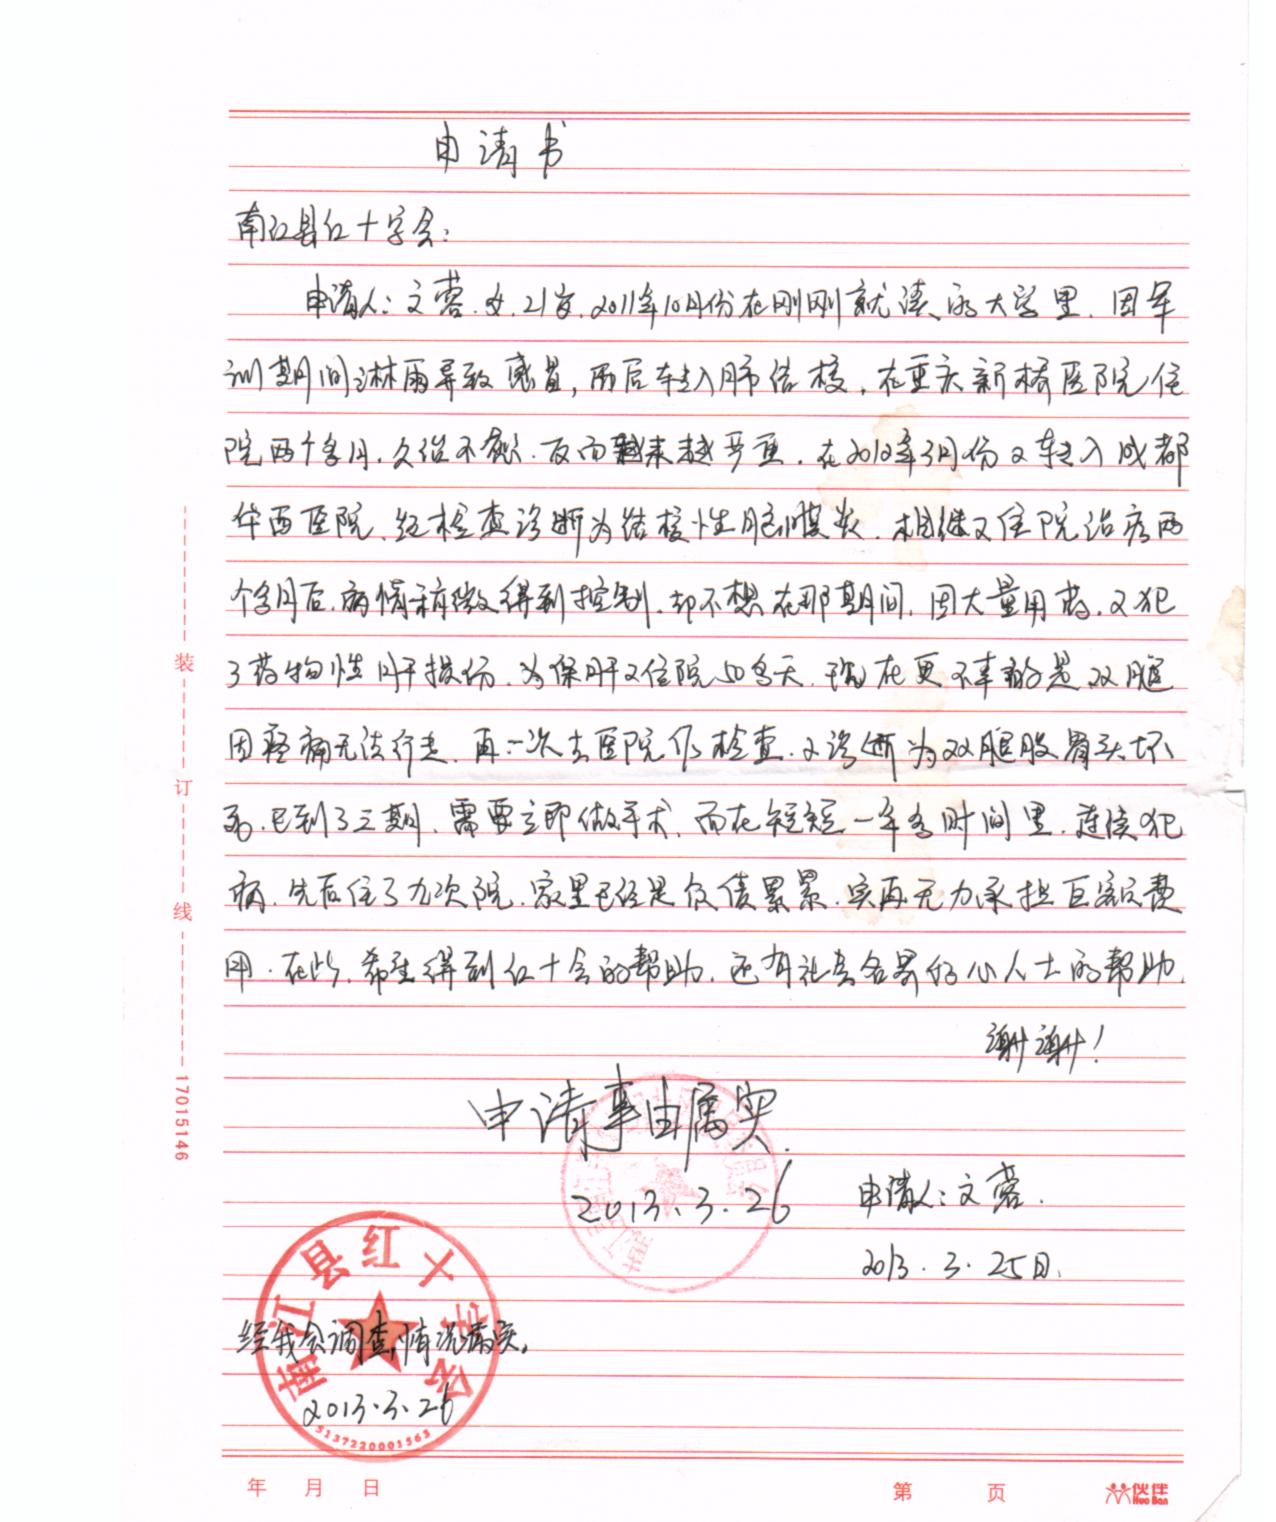 申请书
南江县红十字会:
申请人:文蓉.女.21岁.2011年10月份在刚刚就读的大学里.因军
训期间淋雨导致感冒,而后转入肺结核.在重庆新桥医院住
院两个多月.久治不愈.反而越来越严重.在2012年3月份又转入成都
华西医院.经检查诊断为结核性脑膜炎.相继又住院治疗两
个多月后.病情稍微得到控制.却不想在那期间.因大量用药.又犯
了药物性肝损伤.为保肝又住院50多天.现在更不幸的是双腿
因疼痛无法行走.再一次去医院作检查.又诊断为双腿股骨头坏
死.已到了三期.需要立即做手术.而在短短一年多时间里.连续犯
病.先后住了九次院.家里已经是负债累累.实再无力承担巨额费
用.在此.希望得到红十会的帮助.还有社会各界好心人士的帮助.
谢谢!
申请事由属实.
2013.3.26
申请人:文蓉.
2013.3.25日.
南江县红十字会
经我会调查,情况属实.
2013.3.26
5137220001563
装
订
线
17015146
年 月 日
第 页
伙伴
Huo Ban